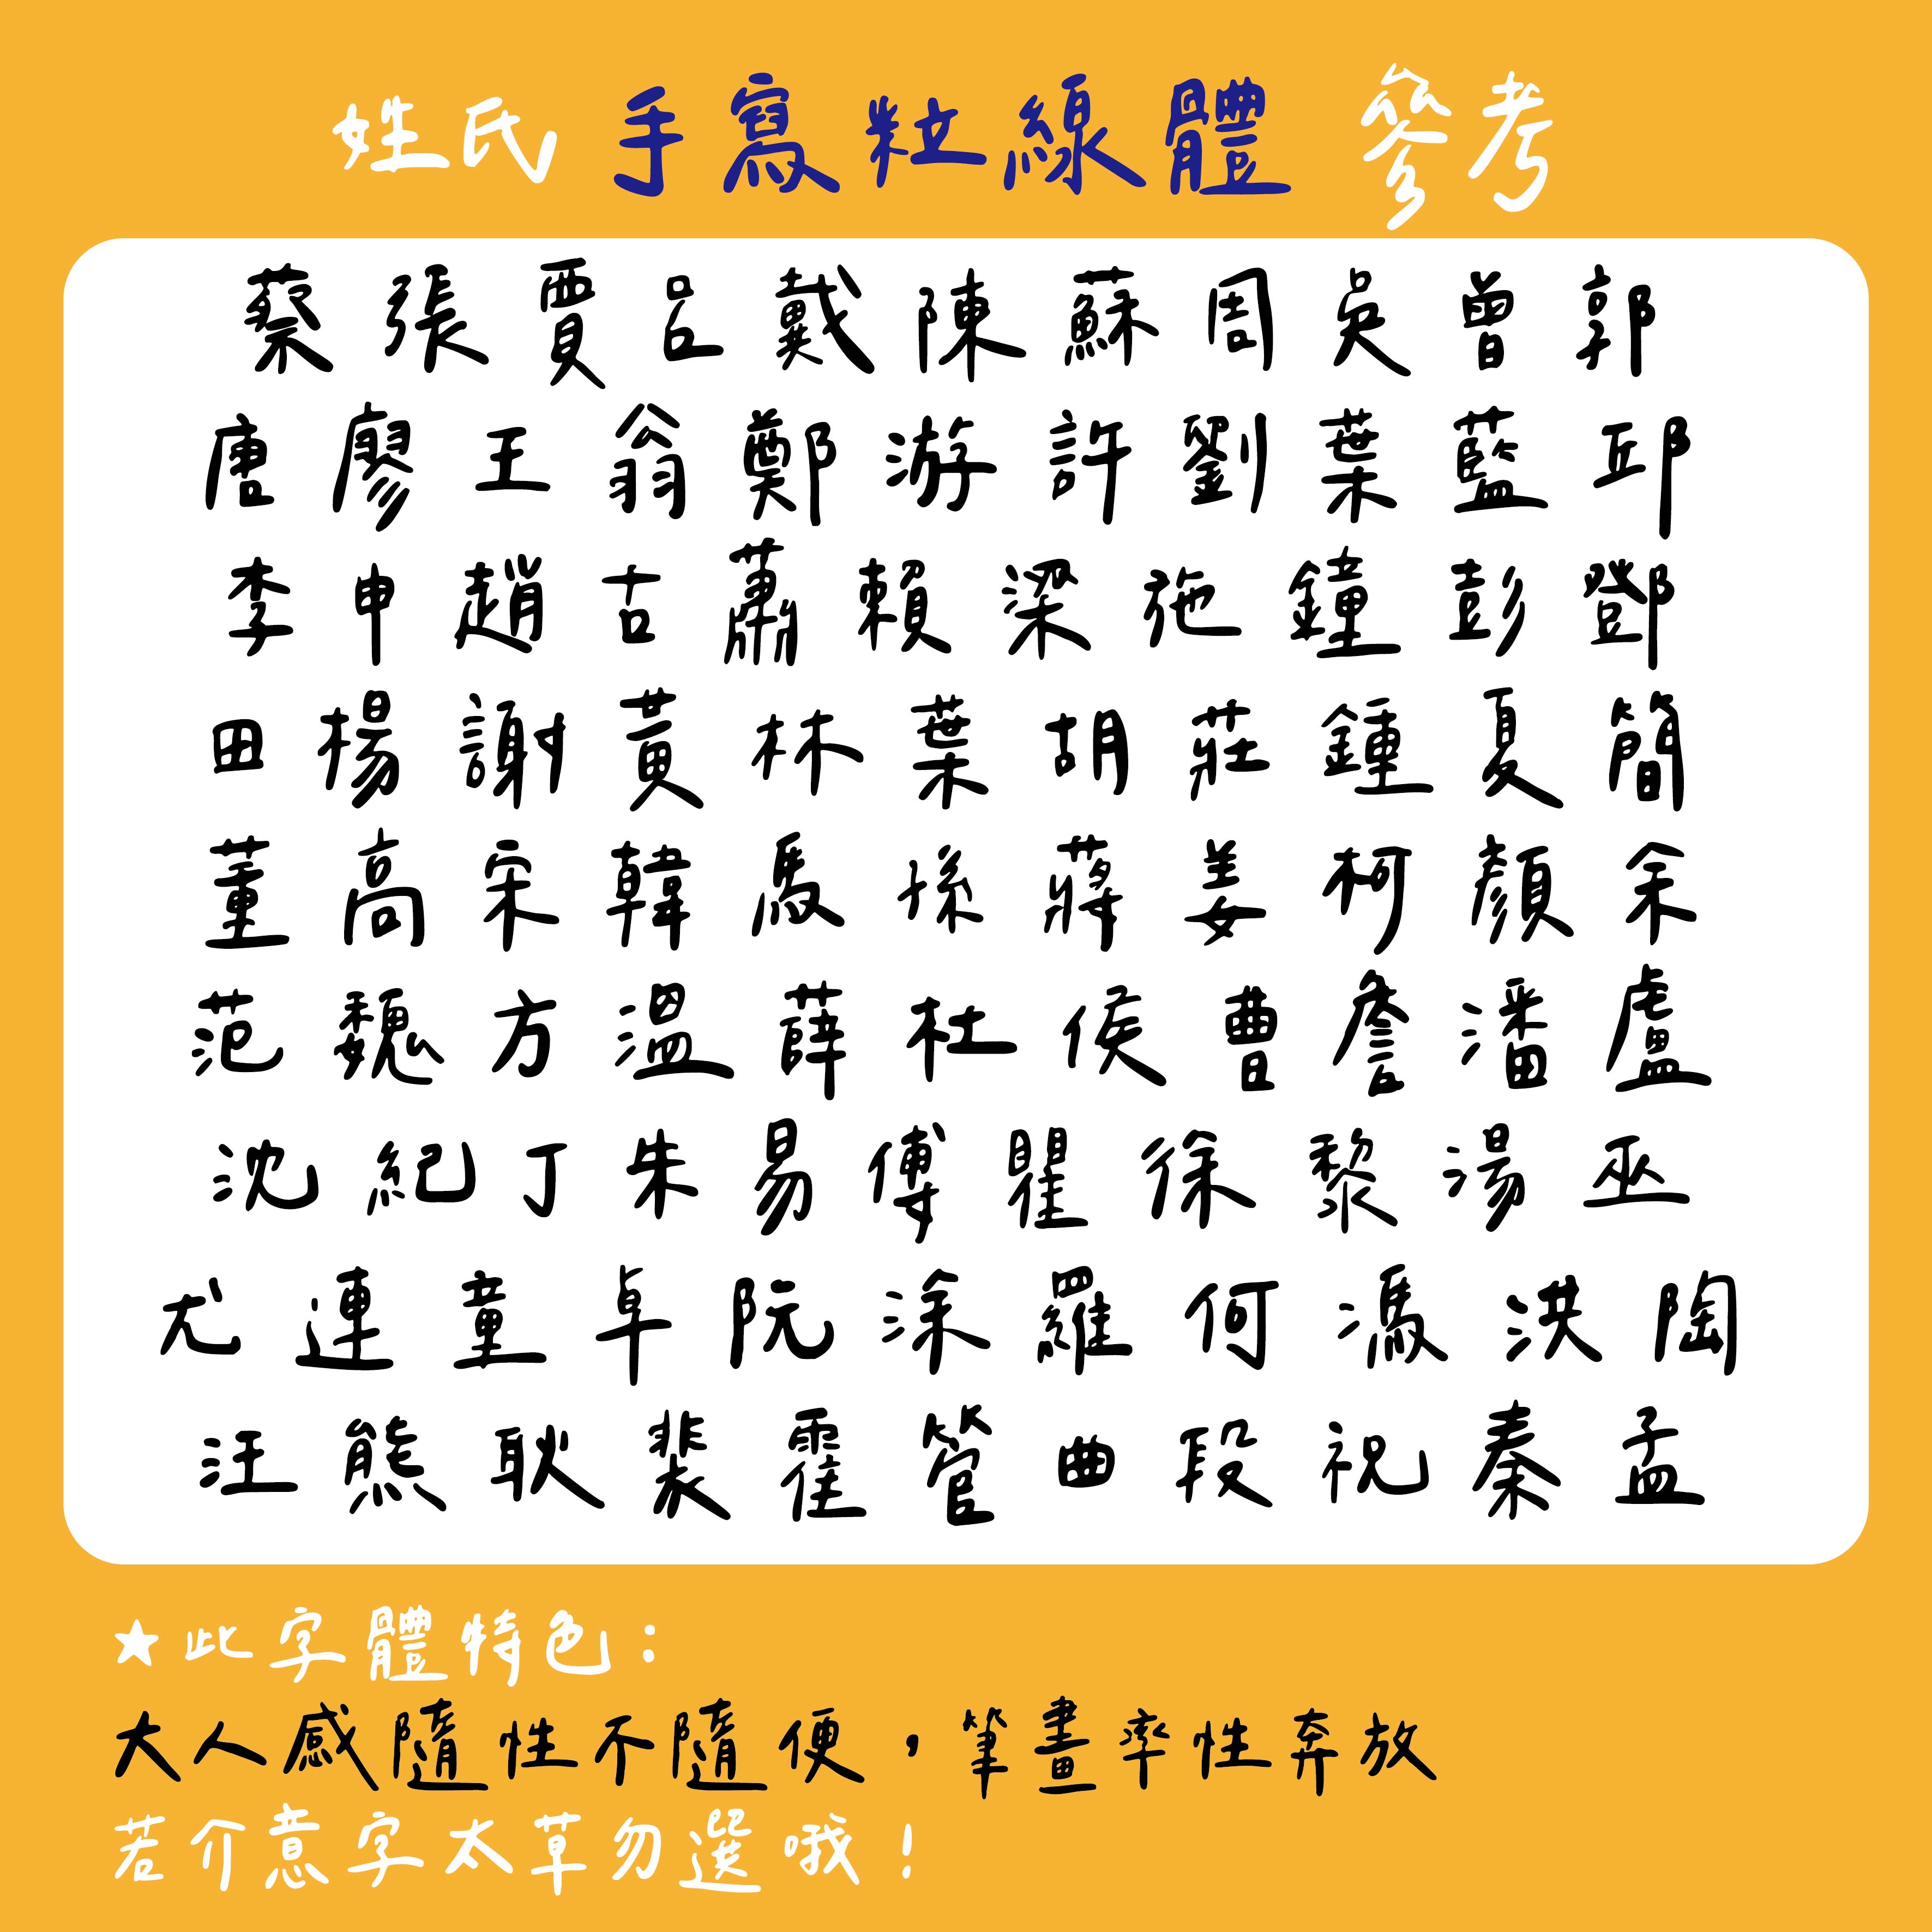 姓氏 手寫粗線體 參考
蔡 張 賈 呂 戴 陳 蘇 周 吳 曾 郭
唐 廖 王 翁 鄭 游 許 劉 葉 藍 邱
李 申 趙 古 蕭 賴 梁 施 鐘 彭 鄧
田 楊 謝 黃 林 葉 胡 莊 鍾 夏 簡
董 高 宋 韓 馬 孫 蔣 姜 柯 顏 余
范 魏 方 溫 薛 杜 侯 曹 詹 潘 盧
沈 紀 丁 朱 易 傅 瞿 徐 黎 湯 巫
尤 連 童 卓 阮 涂 羅 何 馮 洪 陶
汪 熊 耿 裴 霍 管 曲 段 祝 秦 孟
★此字體特色：
大人感隨性不隨便，筆畫率性奔放
若介意字太草勿選哦！